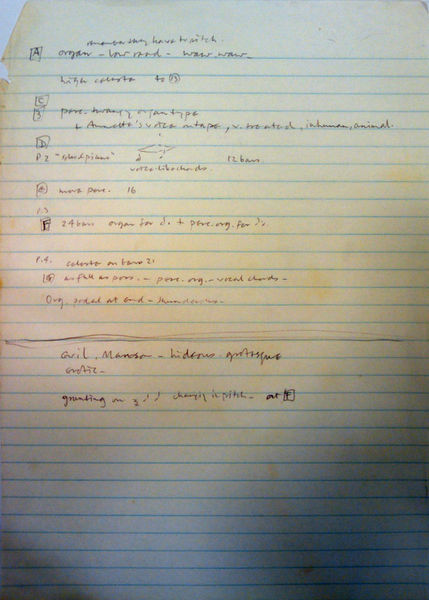 remember they have to pitch.
A organ - low reed - waw waw
high celesta to B
C
3 perc. twangy organ type
+ Annetta's voice on tape, v. treated, inhuman, animal.
D
P.2 12 bars
voice-like chords.
more perc. 16
P.3
F 24 bars organ for + perc. org. for
P.4. celesta on bars 21
as full as poss. - perc. org. - vocal chords -
Org. pedal at end - thunderous -
evil, Manson - hideous grotesque
erotic -
grunting on 3 changing in pitch - at F